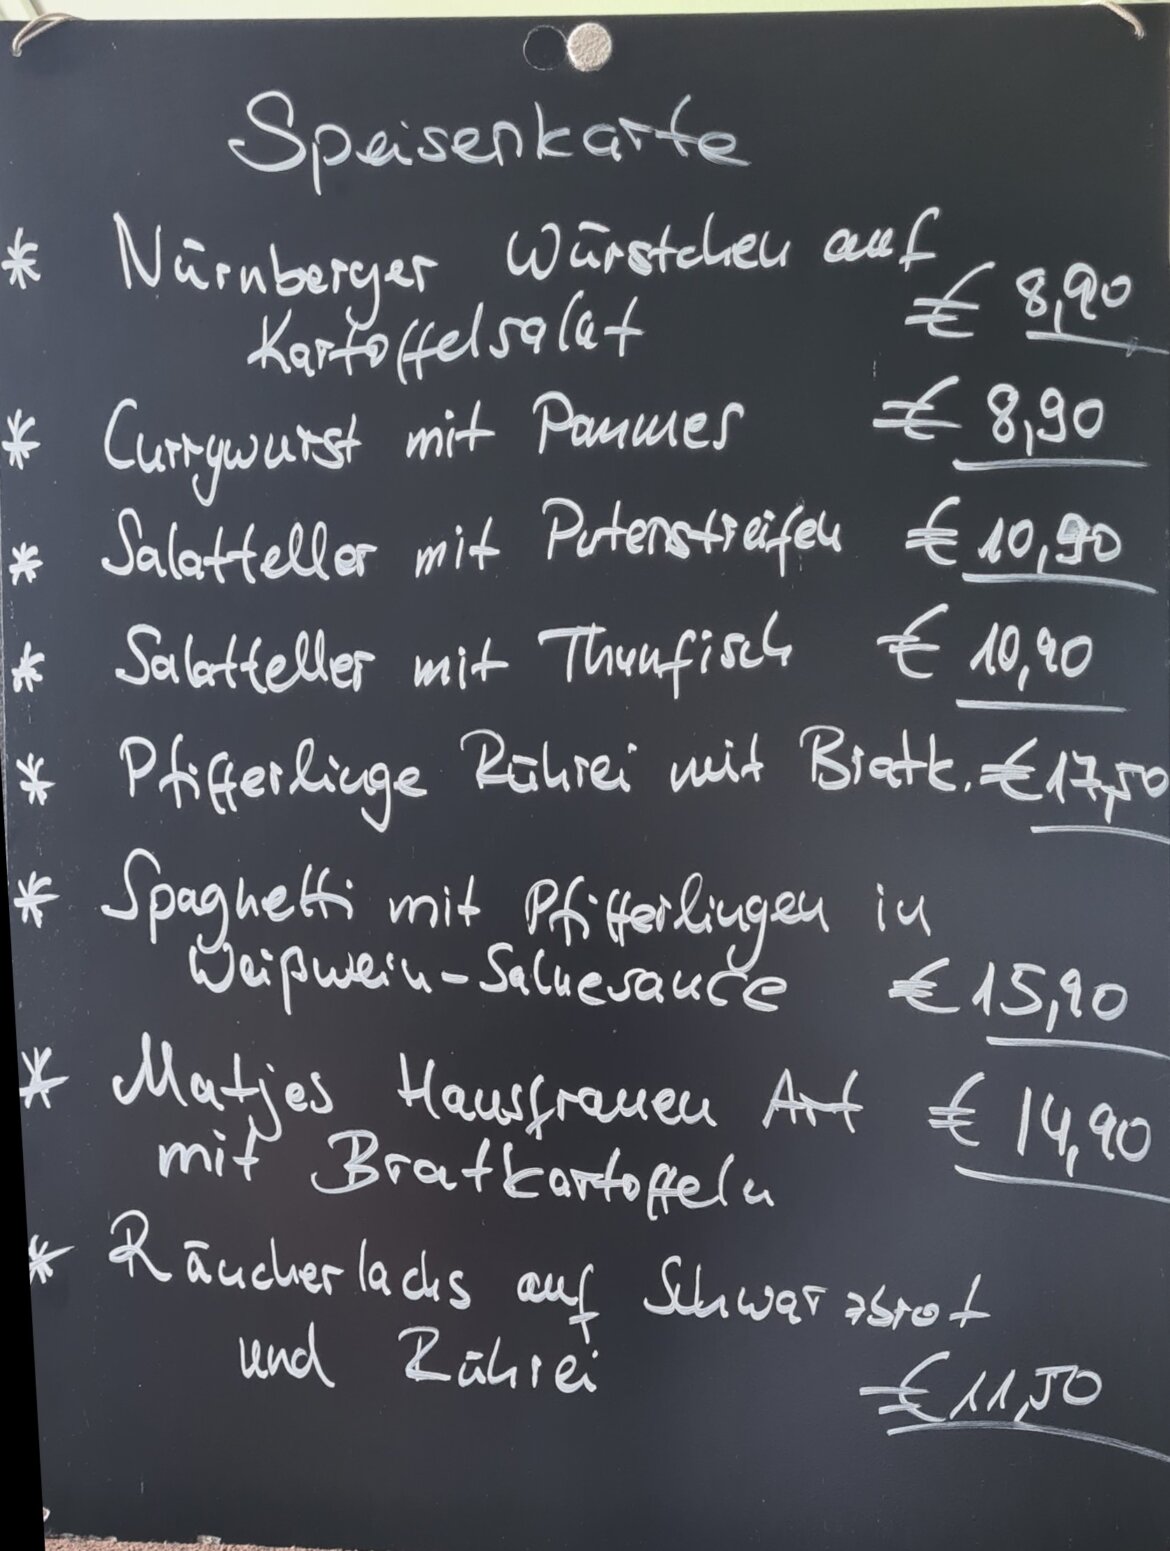 Speisenkarte
* Nürnberger Würstchen auf
Kartoffelsalat € 8,90
* Currywurst mit Pommes € 8,90
* Salatteller mit Putenstreifen € 10,90
* Salatteller mit Thunfisch € 10,90
* Pfifferlinge Rührei mit Bratk. € 17,50
* Spaghetti mit Pfifferlingen in
Weißwein-Sahnesauce € 15,90
* Matjes Hausfrauen Art € 14,90
mit Bratkartoffeln
* Räucherlachs auf Schwarzbrot
und Rührei
€ 11,50